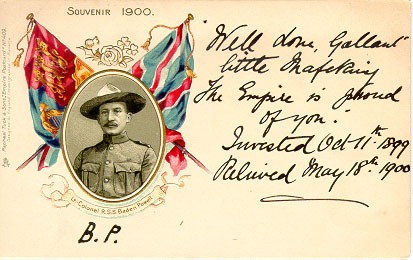 SOUVENIR 1900.
"Well done, Gallant
little Mafeking
The Empire is proud
of you.
Invested Oct 11th 1899
Relieved May 18th 1900
Lt-Colonel R.S.S. Baden Powell
B.P.
Raphael Tuck & Sons' "Empire" Postcard